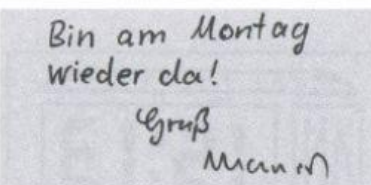 Bin am Montag
wieder da!
Gruß